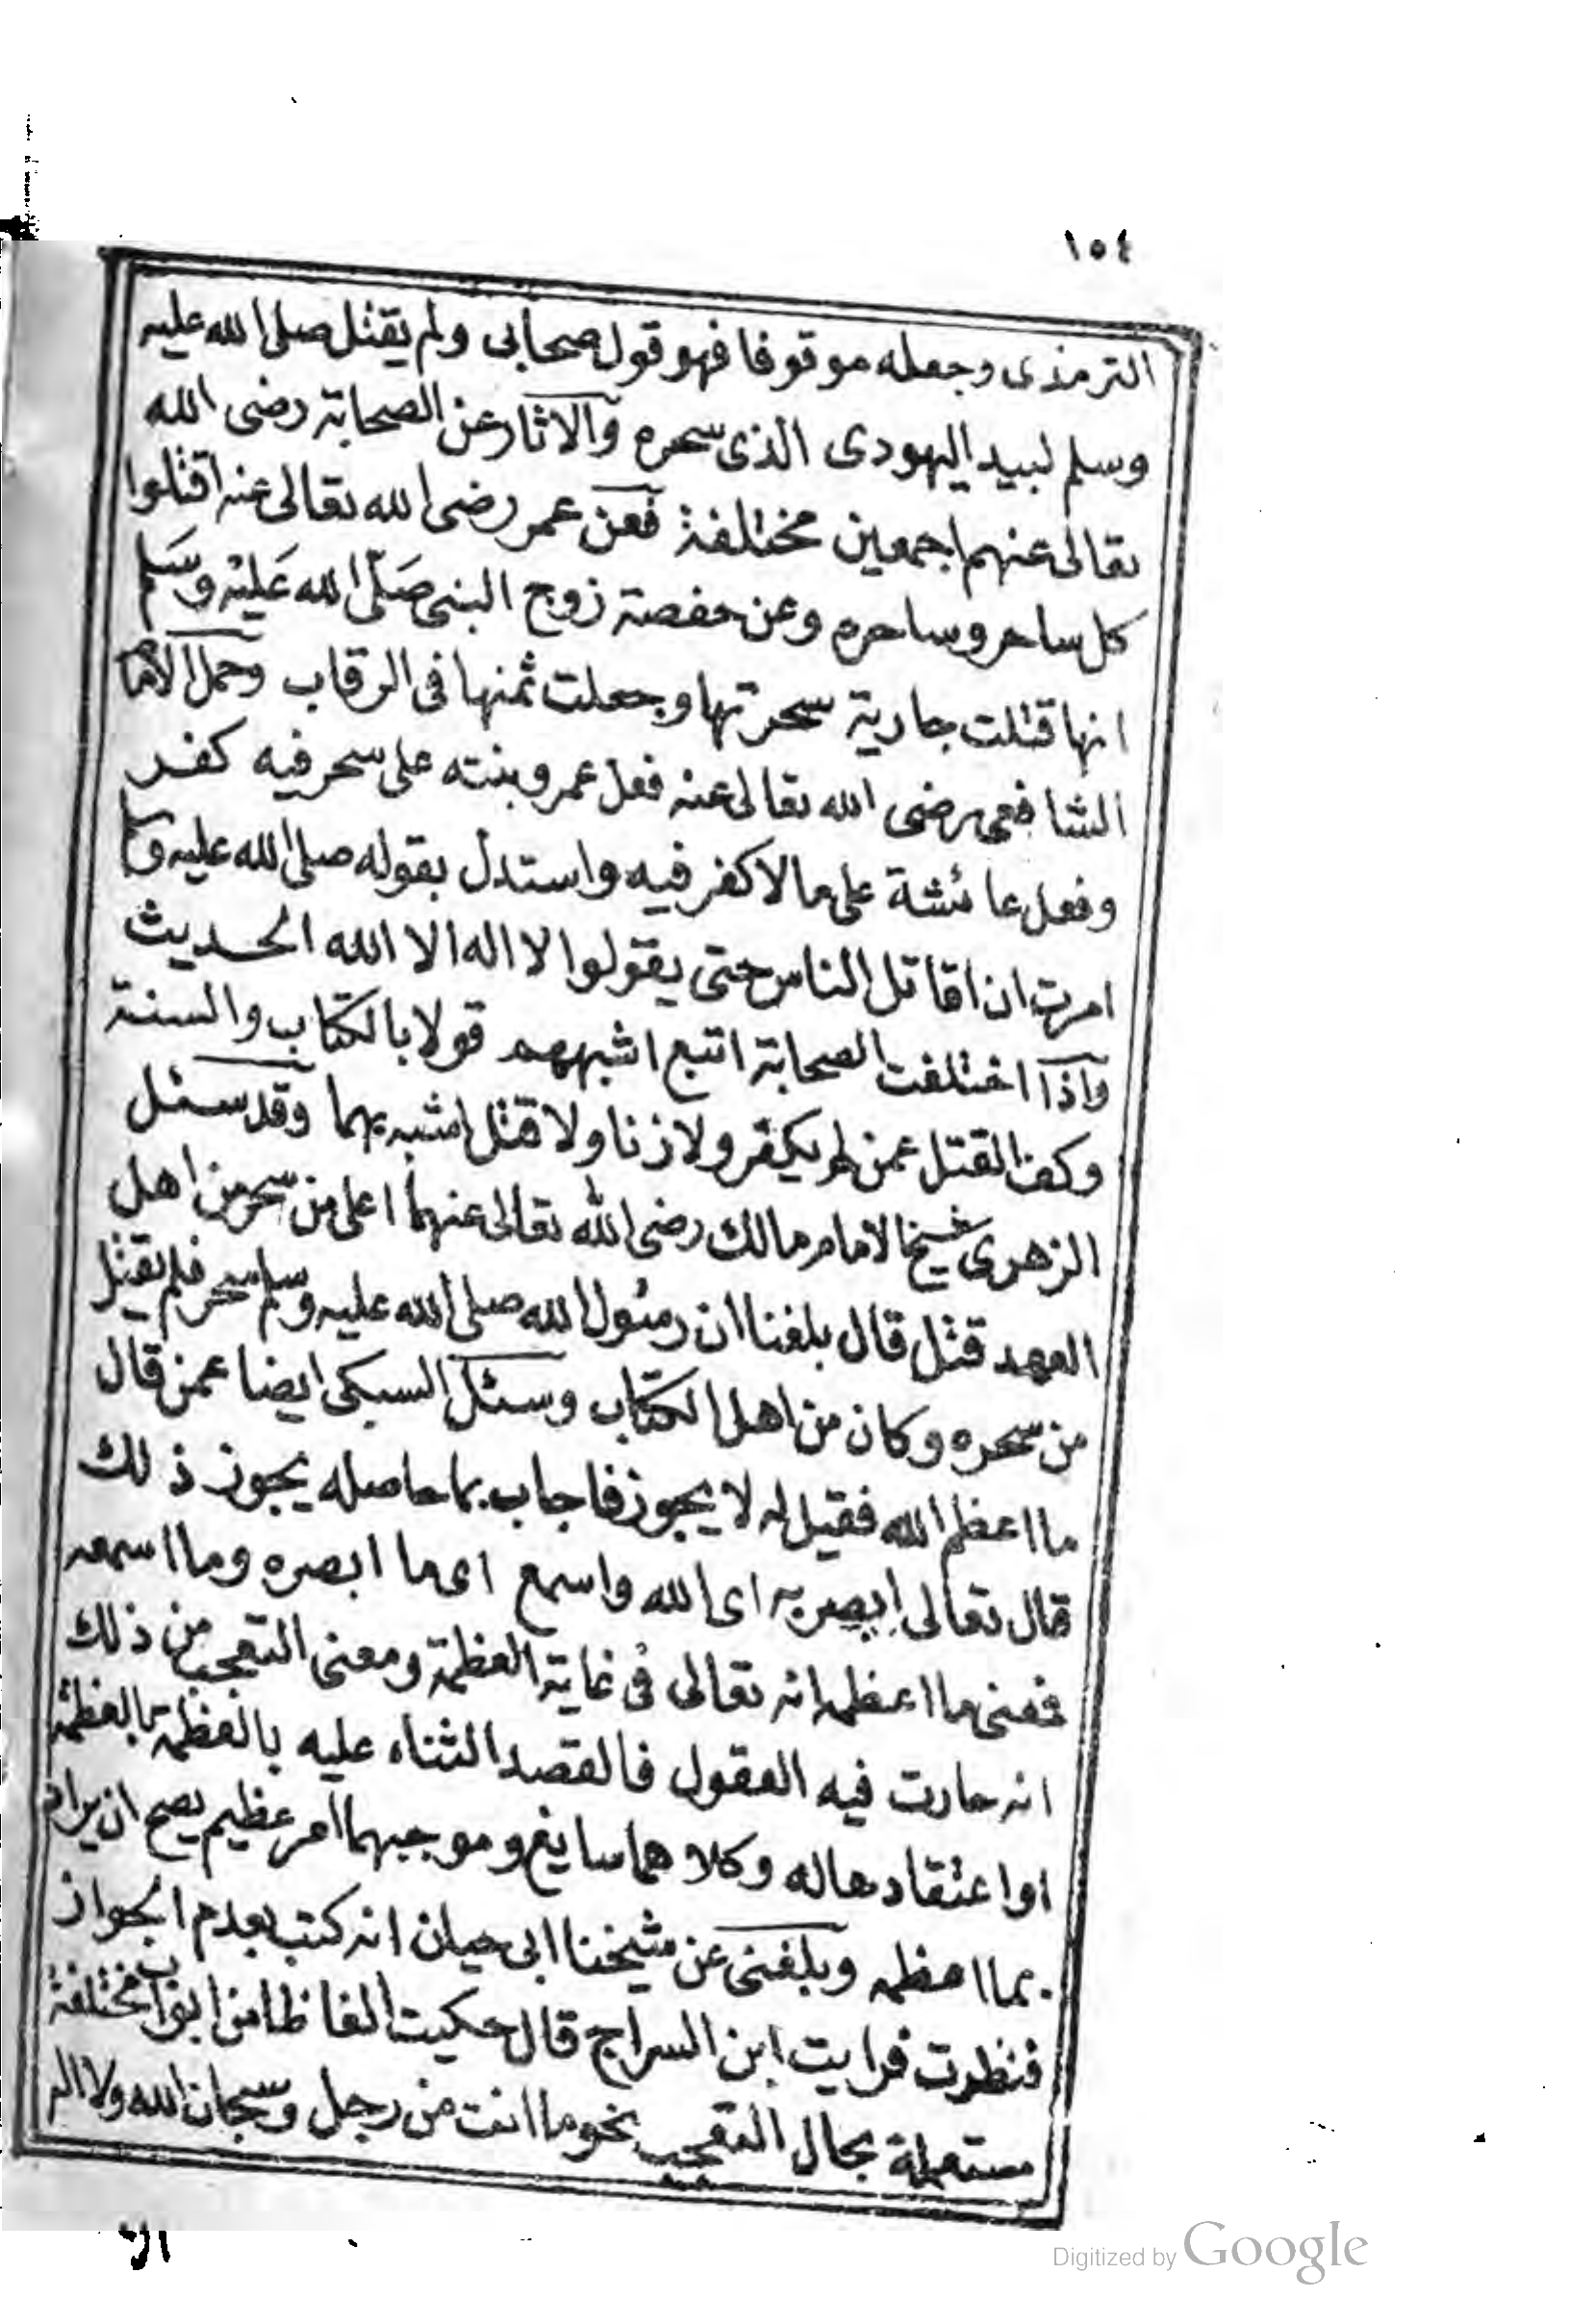 ١٥٤
الترمذى وجعله موقوفا فهو قول صحابى ولم يقتل صلى الله عليه
وسلم لبيد اليهودى الذى سحره والاثار عن الصحابة رضى الله
تعالى عنهم اجمعين مختلفة فعن عمر رضى الله تعالى عنه اقتلوا
كل ساحر وساحره وعن حفصة زوج النبى صَلّى الله عَليْه وسَلم
انها قتلت جارية سحرتها وجعلت ثمنها فى الرقاب وحمل الامام
الشافعى رضى الله تعالى عنه فعل عمر وبنته على سحر فيه كفر
وفعل عائشة على ما لا كفر فيه واستدل بقوله صلى الله عليه وسلم
امرت ان اقاتل الناس حتى يقولوا لا اله الا الله الحديث
واذا اختلفت الصحابة اتبع اشبههم قولا بالكتاب والسنة
وكف القتل عمن لم يكفر ولا زنا ولا قتل اشبه بهما وقد سئل
الزهرى شيخ الامام مالك رضى الله تعالى عنهما اعلى من سحر من اهل
العهد قتل قال بلغنا ان رسُول الله صلى الله عليه وسلم سحر فلم يقتل
من سحره وكان من اهل الكتاب وسئل السبكى ايضا عمن قال
ما اعظم الله فقيل له لا يجوز فاجاب بما حاصله يجوز ذلك
قال تعالى ابصر به اى الله واسمع اى ما ابصره وما اسمعه
فمعنى ما اعظمه انه تعالى فى غاية العظمة ومعنى التعجب من ذلك
انه حارت فيه العقول فالقصد الثناء عليه بالعظمة بالعظمة
او اعتقادها له وكلاهما سايغ وموجبهما امر عظيم يصح ان يراد
بما اعظمه وبلغنى عن شيخنا ابى حيان انه كتب بعدم الجواز
فنظرت فرايت ابن السراج قال حكيت الفاظ من ابواب مختلفة
مستعملة بحال التعجب نحو ما انت من رجل وسبحان الله ولا اله
الا
Digitized by Google